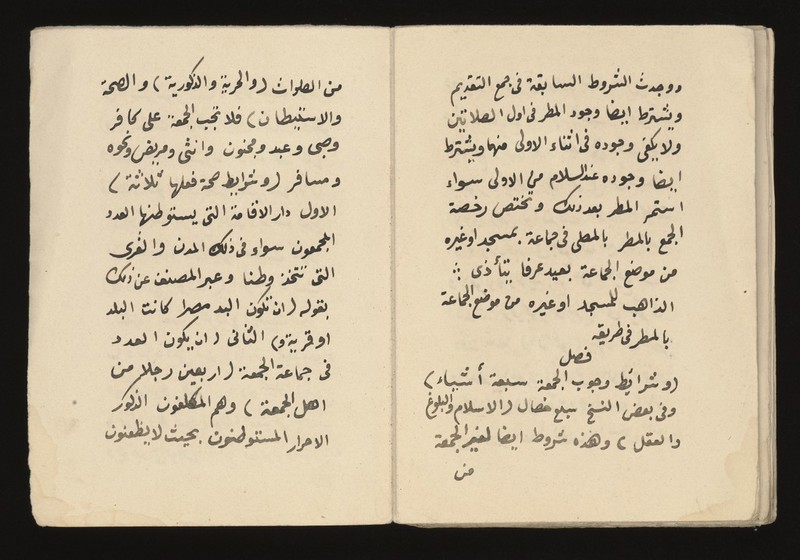 ووجدت الشروط السابقة في جمع التقديم
ويشترط ايضا وجود المطر في اول الصلاتين
ولا يكفي وجوده في اثناء الاولى منهما ويشترط
ايضا وجوده عند السلام من الاولى سواء
استمر المطر بعد ذلك وتختص رخصة
الجمع بالمطر بالمصلي في جماعة بمسجد او غيره
من موضع الجماعة بعيد عرفا يتأذى
الذاهب للمسجد او غيره من موضع الجماعة
بالمطر في طريقه
فصل
(وشرائط وجوب الجمعة سبعة أشياء)
وفي بعض النسخ سبع خصال (الاسلام والبلوغ
والعقل) وهذه شروط ايضا لغير الجمعة
من
من الصلوات (والحرية والذكورية) والصحة
والاستيطان) فلا تجب الجمعة على كافر
وصبي وعبد ومجنون وانثى ومريض ونحوه
ومسافر (وشرايط صحة فعلها ثلاثة)
الاول دار الاقامة التي يستوطنها العدد
المجمعون سواء في ذلك المدن والقرى
التي تتخذ وطنا وعبر المصنف عن ذلك
بقوله (ان تكون البلد مصرا كانت البلد
او قرية و) الثاني (ان يكون العدد
في جماعة الجمعة (اربعين رجلا من
اهل الجمعة) وهم المكلفون الذكور
الاحرار المستوطنون بحيث لا يظعنون